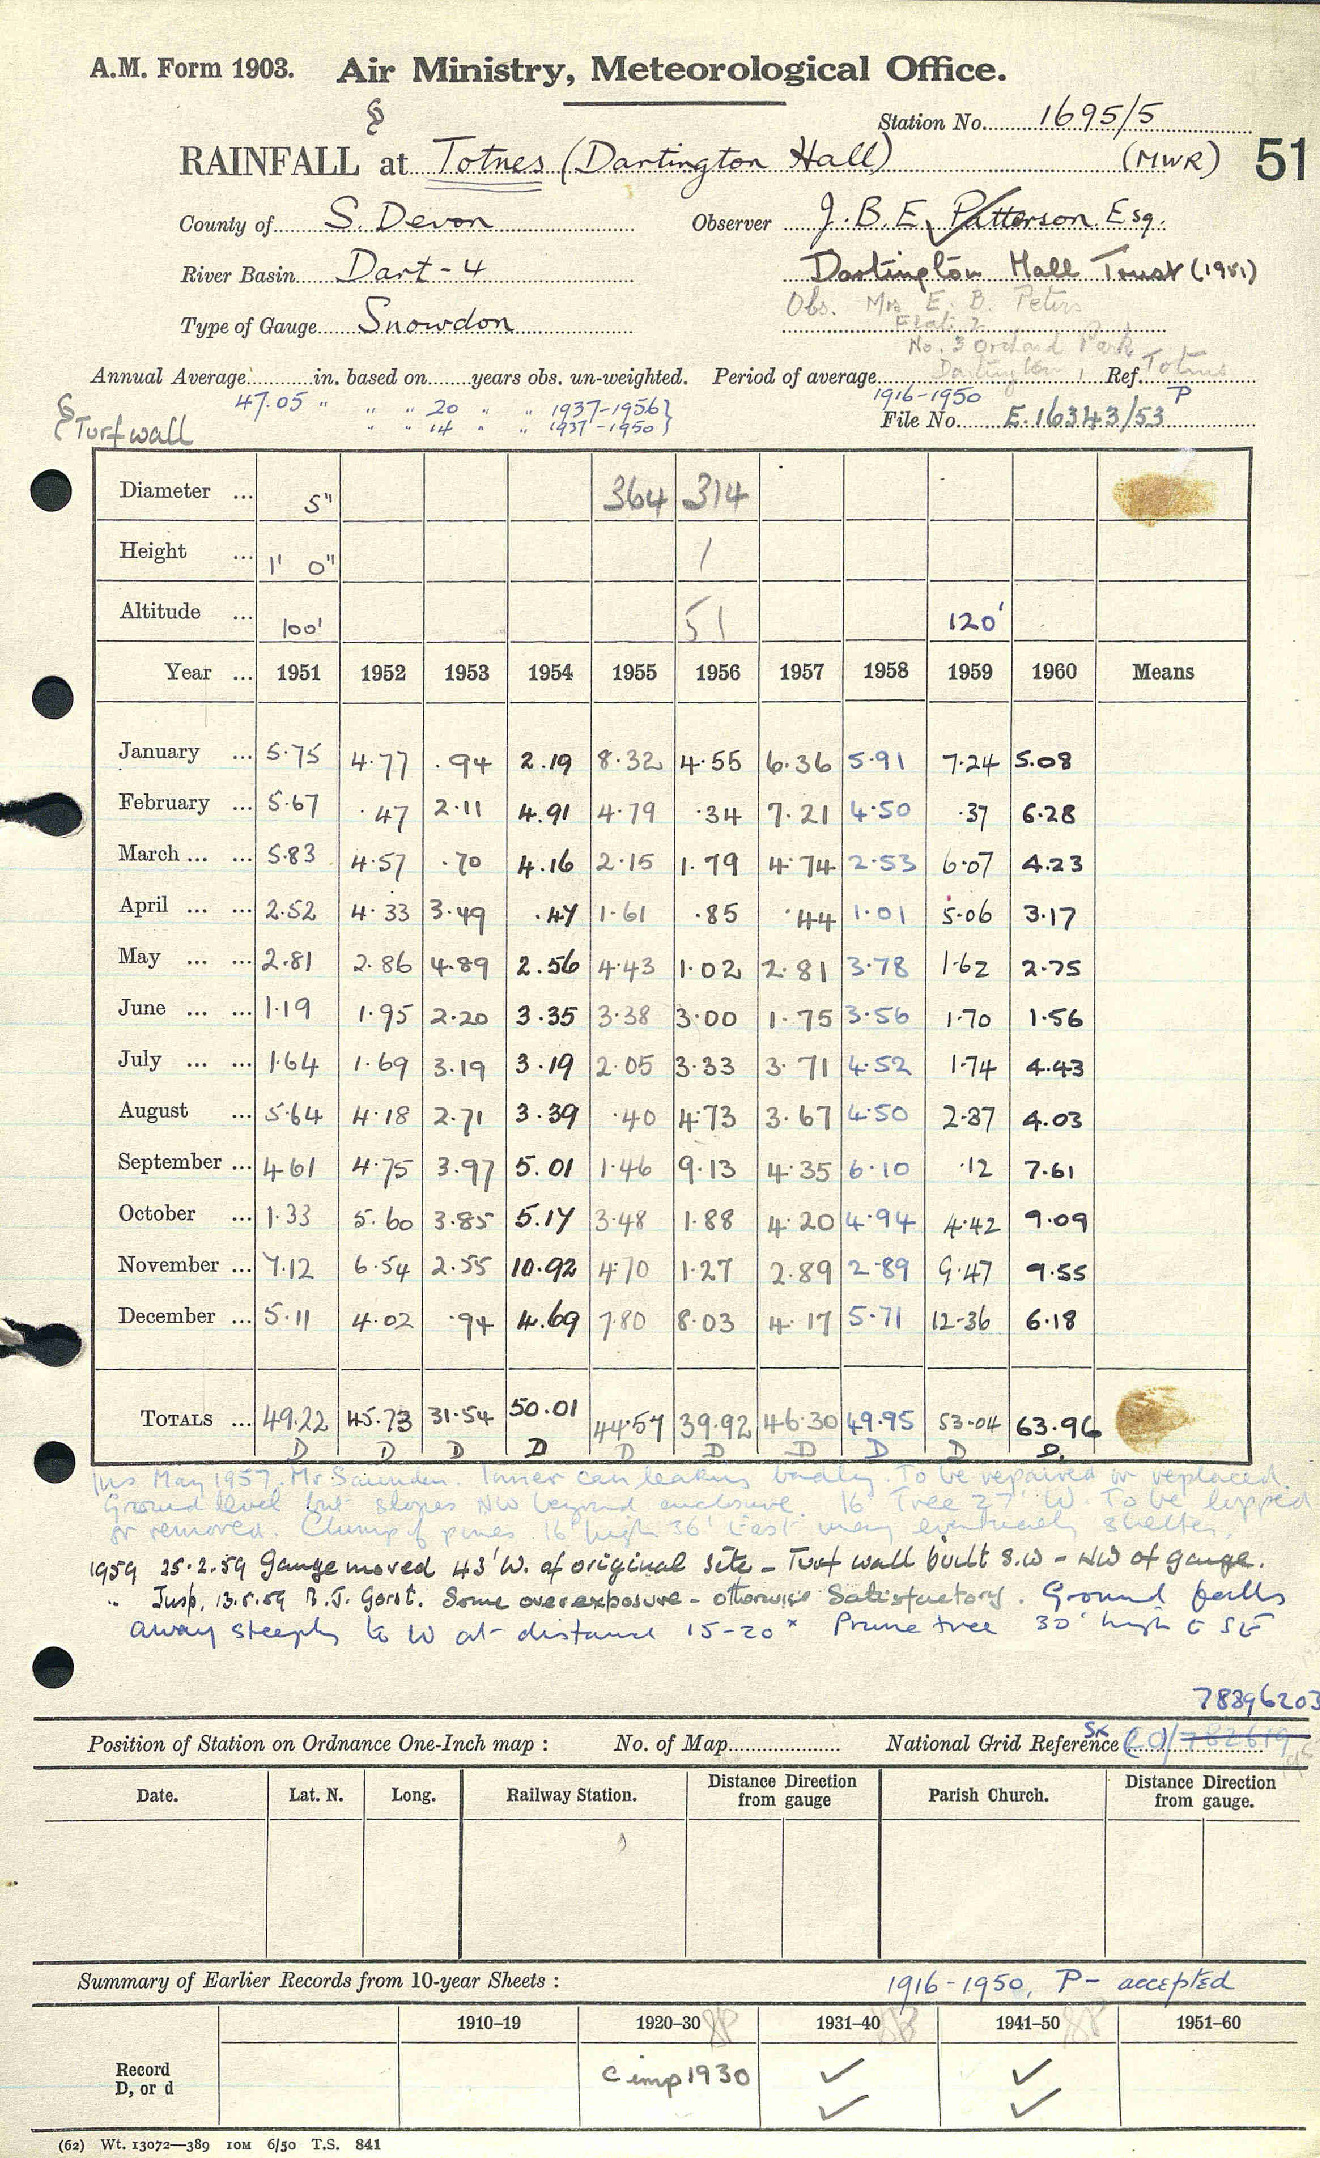 A.M. Form 1903. Air Ministry, Meteorological Office.
Station No. 1695/5
RAINFALL at Totnes (Dartington Hall) (MWR) 51
County of S. Devon Observer J.B.E. Patterson Esq.
River Basin Dart - 4 Dartington Hall Trust (1951)
Obs. Mrs E. B. Peters
Type of Gauge Snowdon Flat 2
No. 3 Orchard Park
Annual Average in. based on years obs. un-weighted. Period of average Dartington, Ref. Totnes
47.05 " " " 20 " " 1937-1956} 1916-1950 P
{Turf wall " " 14 " " 1937-1950} File No. E.16343/53
Diameter ... 5" 364 314
Height ... 1' 0" 1
Altitude ... 100' 51 120'
Year ... 1951 1952 1953 1954 1955 1956 1957 1958 1959 1960 Means
January ... 5.75 4.77 .94 2.19 8.32 4.55 6.36 5.91 7.24 5.08
February ... 5.67 .47 2.11 4.91 4.79 .34 7.21 4.50 .37 6.28
March ... ... 5.83 4.57 .70 4.16 2.15 1.79 4.74 2.53 6.07 4.23
April ... ... 2.52 4.33 3.49 .47 1.61 .85 .44 1.01 5.06 3.17
May ... ... 2.81 2.86 4.89 2.56 4.43 1.02 2.81 3.78 1.62 2.75
June ... ... 1.19 1.95 2.20 3.35 3.38 3.00 1.75 3.56 1.70 1.56
July ... ... 1.64 1.69 3.19 3.19 2.05 3.33 3.71 4.52 1.74 4.43
August ... 5.64 4.18 2.71 3.39 .40 4.73 3.67 4.50 2.87 4.03
September ... 4.61 4.75 3.97 5.01 1.46 9.13 4.35 6.10 .12 7.61
October ... 1.33 5.60 3.85 5.17 3.48 1.88 4.20 4.94 4.42 9.09
November ... 7.12 6.54 2.55 10.92 4.70 1.27 2.89 2.89 9.47 9.55
December ... 5.11 4.02 .94 4.69 7.80 8.03 4.17 5.71 12.36 6.18
TOTALS ... 49.22 45.73 31.54 50.01 44.57 39.92 46.30 49.95 53.04 63.96
D D D D D D D D D D.
Ins May 1957. Mr Saunders. Inner can leaking badly. To be repaired or replaced.
Ground level but slopes NW beyond enclosure. 16' Tree 27' W. To be lopped
or removed. Clump of pines 16' high 36' East may eventually shelter.
1959 25.2.59 Gauge moved 43' W. of original site - Turf wall built S.W - NW of gauge.
" Insp. 13.5.59 Some overexposure - otherwise Satisfactory. Ground falls
away steeply to W at distance 15-20 Prune tree 30' high ESE
78396203
Position of Station on Ordnance One-Inch map : No. of Map National Grid Reference SX (20)/782619
Date. Lat. N. Long. Railway Station. Distance Direction from gauge Parish Church. Distance Direction from gauge.
Summary of Earlier Records from 10-year Sheets : 1916-1950, P- accepted
1910–19 1920–30 1931–40 1941–50 1951–60
Record D, or d c imp 1930 ✓ ✓
✓ ✓
(62) Wt. 13072—389 IOM 6/50 T.S. 841